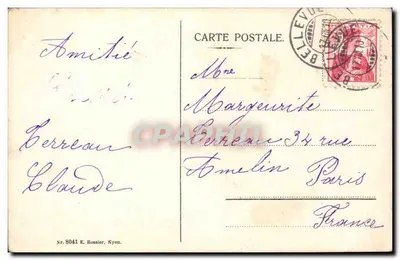 CARTE POSTALE.
BELLEVUE
Amitié
Terreau
Claude
Mme
Margeurite
Terreau 34 rue
Amelin Paris
France
Nr. 8041 E. Rossier, Nyon.